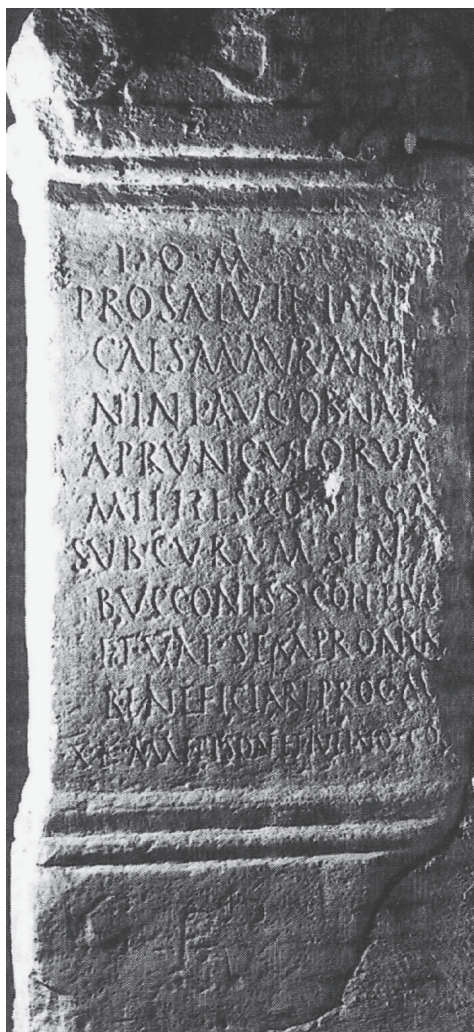 I·O·M
PRO SALVTE IMP
CAES·M·AVR·ANTO
NINI·AVG·OB·NAT
APRVNCVLORVM
MILITES·COH·I·GA
SVB·CVRA·M·SEN
BVCCONIS COH·EIVS
ET·VAL·SEMPRONIAN
BENEFICIARI·PROC·AV
PISONE·ET·IVLIANO·COS